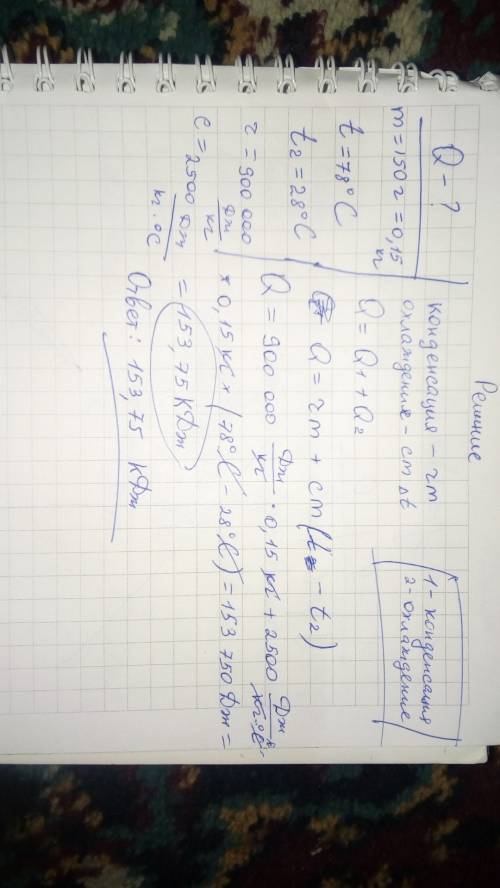 Решение
Q - ?
m = 150 г = 0,15 кг
t = 78°C
t₂ = 28°C
r = 900 000 Дж/кг
c = 2500 Дж/кг·°C
конденсация - rm
охлаждение - cm Δt
1 - конденсация
2 - охлаждение
Q = Q₁ + Q₂
Q = rm + cm (t - t₂)
Q = 900 000 Дж/кг · 0,15 кг + 2500 Дж/кг·°C
× 0,15 кг × (78°C - 28°C) = 153 750 Дж =
= 153,75 кДж
Ответ: 153,75 кДж